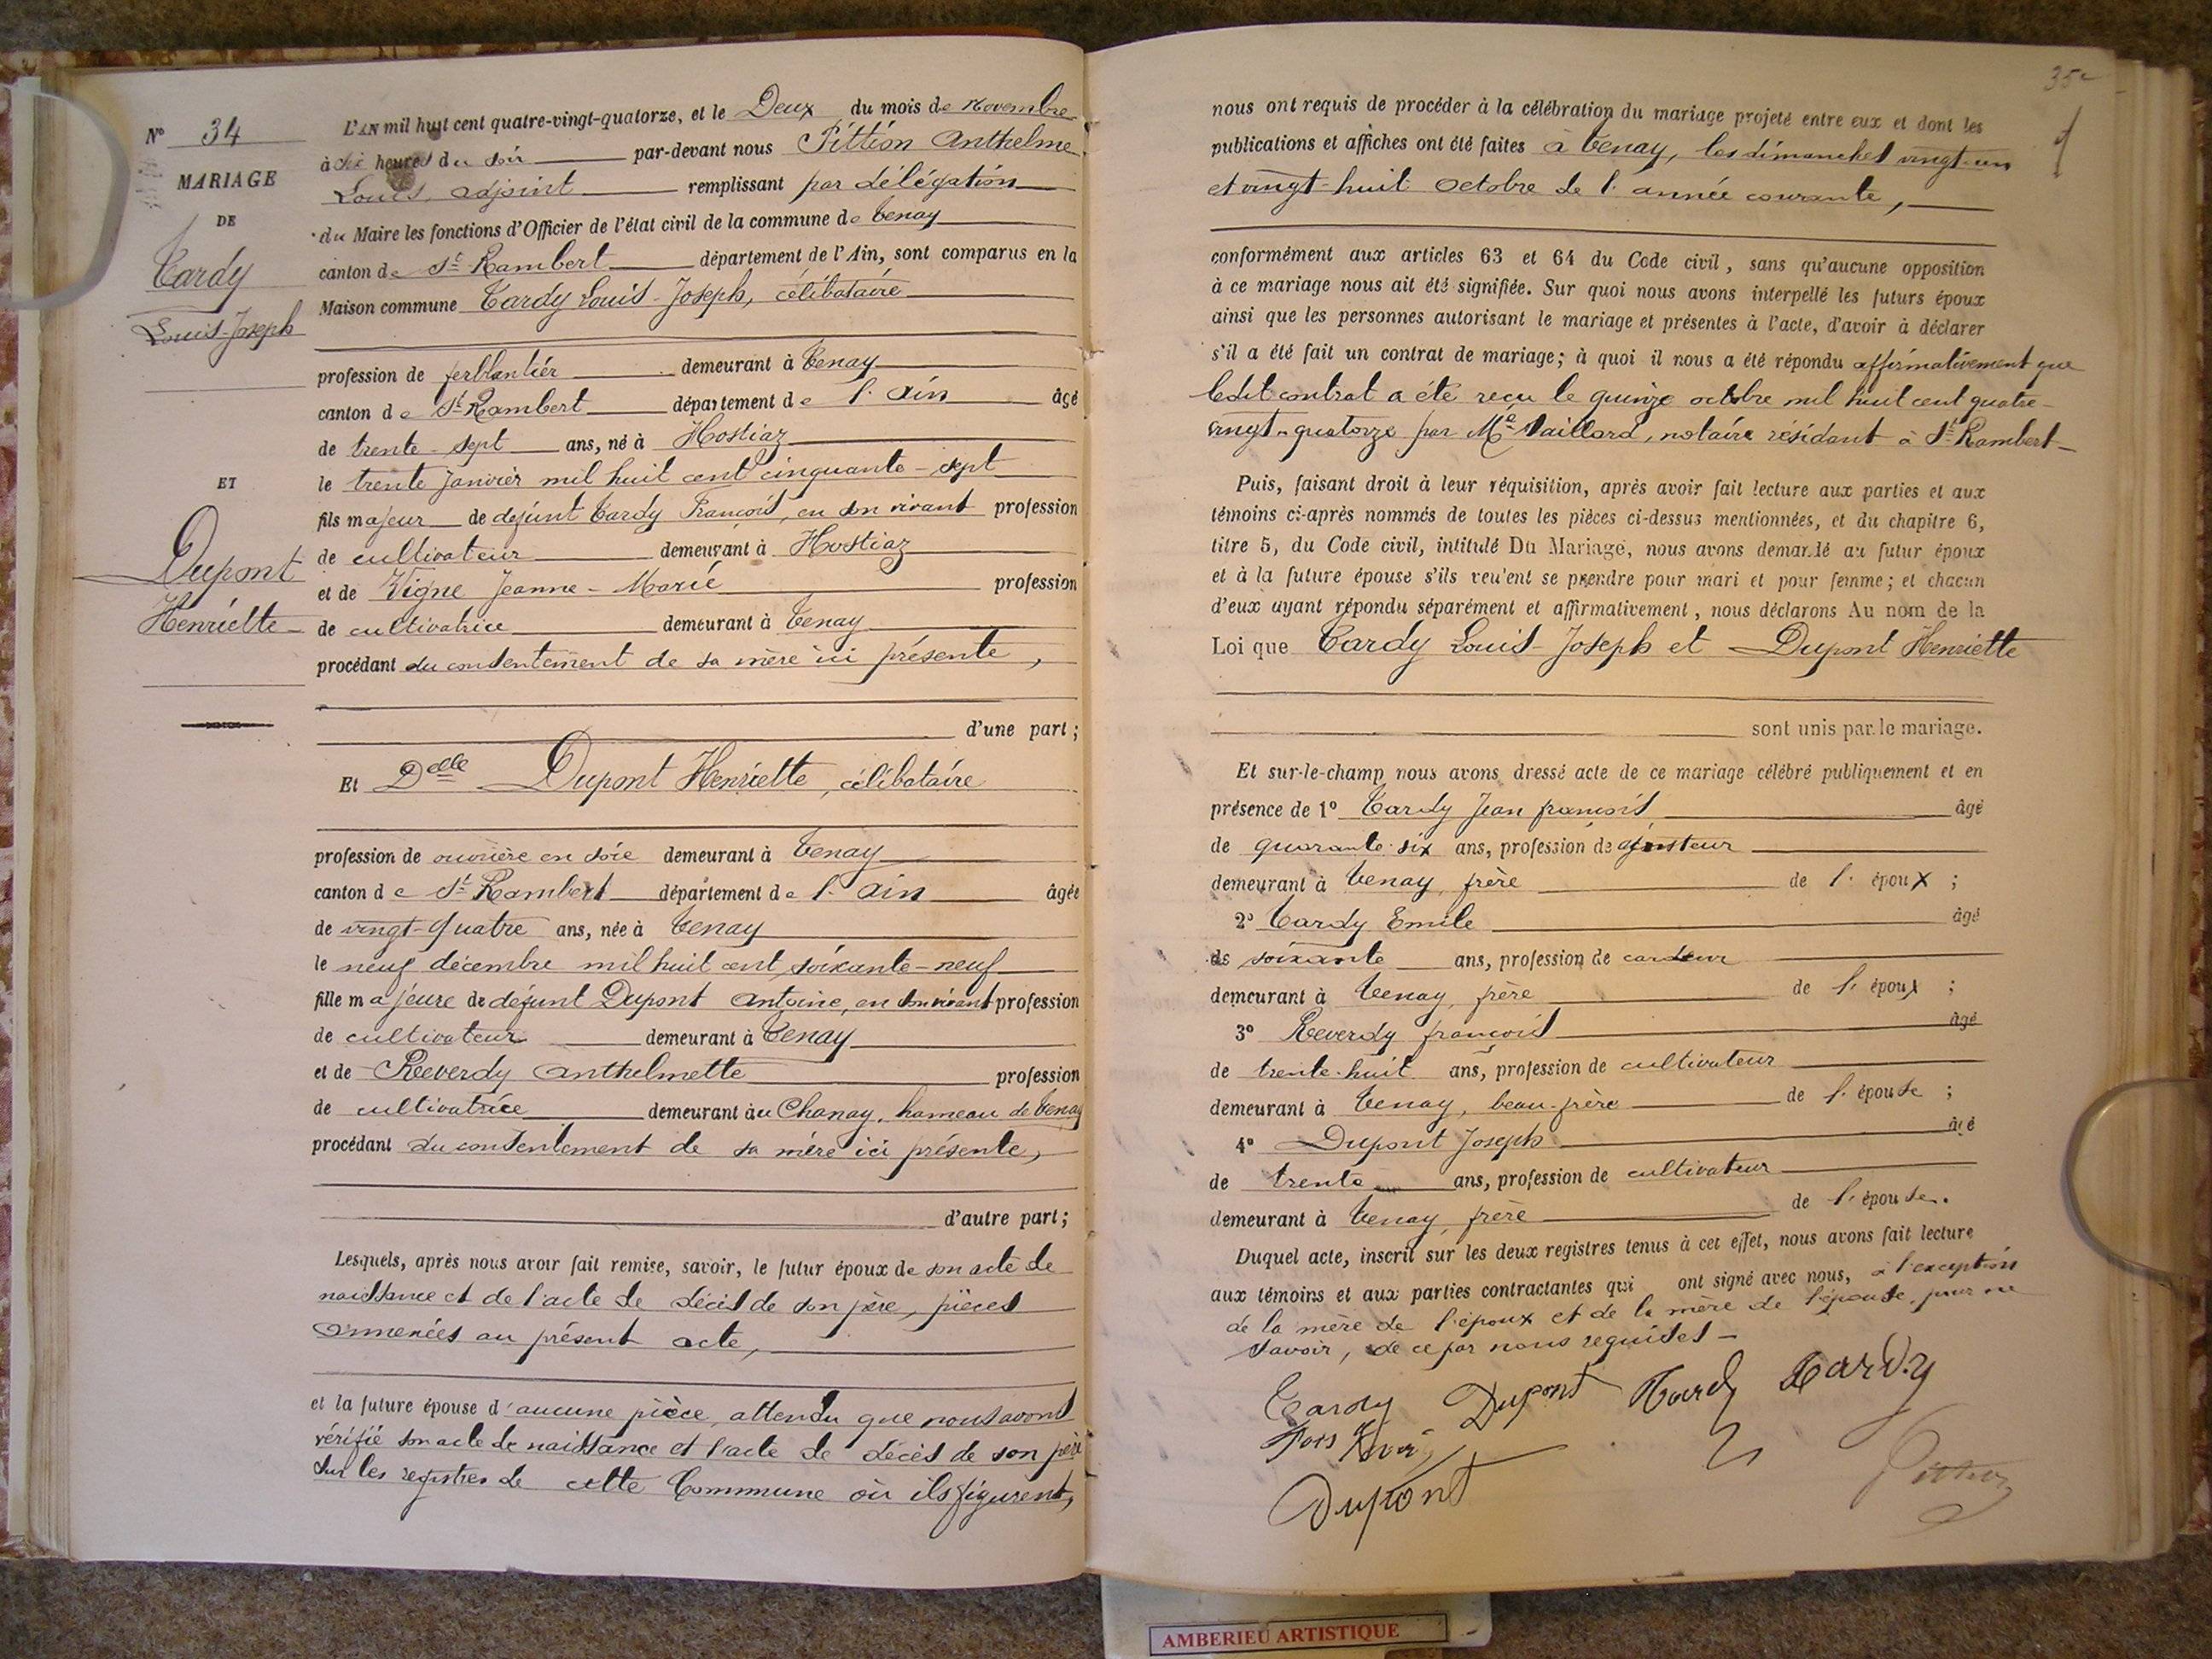 N° 34
MARIAGE
DE
Tardy
Louis-Joseph
ET
Dupont
Henriette
L'AN mil huit cent quatre-vingt-quatorze, et le Deux du mois de Novembre
à six heures du soir par-devant nous Pittion Anthelme
Louis, adjoint remplissant par délégation
du Maire les fonctions d'Officier de l'état civil de la commune de Tenay
canton de St Rambert département de l'Ain, sont comparus en la
Maison commune Tardy Louis-Joseph, célibataire
profession de ferblantier demeurant à Tenay
canton de St Rambert département de l'Ain âgé
de trente-sept ans, né à Hostiaz
le trente Janvier mil huit cent cinquante-sept
fils majeur de défunt Tardy François, en son vivant profession
de cultivateur demeurant à Hostiaz
et de Vigne Jeanne-Marie profession
de cultivatrice demeurant à Tenay
procédant du consentement de sa mère ici présente,
d'une part;
Et Delle Dupont Henriette, célibataire
profession de ouvrière en soie demeurant à Tenay
canton de St Rambert département de l'Ain âgée
de vingt-quatre ans, née à Tenay
le neuf décembre mil huit cent soixante-neuf
fille majeure de défunt Dupont Antoine, en son vivant profession
de cultivateur demeurant à Tenay
et de Reverdy Anthelmette profession
de cultivatrice demeurant au Chanay, hameau de Tenay
procédant du consentement de sa mère ici présente,
d'autre part;
Lesquels, après nous avoir fait remise, savoir, le futur époux de son acte de
naissance et de l'acte de décès de son père, pièces
annexées au présent acte,
et la future épouse d'aucune pièce, attendu que nous avons
vérifié son acte de naissance et l'acte de décès de son père
sur les registres de cette Commune où ils figurent,
35
nous ont requis de procéder à la célébration du mariage projeté entre eux et dont les
publications et affiches ont été faites à Tenay, les dimanches vingt-un
et vingt-huit Octobre de l'année courante,
conformément aux articles 63 et 64 du Code civil, sans qu'aucune opposition
à ce mariage nous ait été signifiée. Sur quoi nous avons interpellé les futurs époux
ainsi que les personnes autorisant le mariage et présentes à l'acte, d'avoir à déclarer
s'il a été fait un contrat de mariage; à quoi il nous a été répondu affirmativement que
ledit contrat a été reçu le quinze octobre mil huit cent quatre-
vingt-quatorze par Me Vaillard, notaire résidant à St Rambert
Puis, faisant droit à leur réquisition, après avoir fait lecture aux parties et aux
témoins ci-après nommés de toutes les pièces ci-dessus mentionnées, et du chapitre 6,
titre 5, du Code civil, intitulé Du Mariage, nous avons demandé au futur époux
et à la future épouse s'ils veulent se prendre pour mari et pour femme; et chacun
d'eux ayant répondu séparément et affirmativement, nous déclarons Au nom de la
Loi que Tardy Louis-Joseph et Dupont Henriette
sont unis par le mariage.
Et sur-le-champ nous avons dressé acte de ce mariage célébré publiquement et en
présence de 1° Tardy Jean françois âgé
de quarante-six ans, profession de ajusteur
demeurant à Tenay, frère de l'époux;
2° Tardy Emile âgé
de soixante ans, profession de cardeur
demeurant à Tenay, frère de l'époux;
3° Reverdy françois âgé
de trente-huit ans, profession de cultivateur
demeurant à Tenay, beau-frère de l'épouse;
4° Dupont Joseph âgé
de trente ans, profession de cultivateur
demeurant à Tenay, frère de l'épouse.
Duquel acte, inscrit sur les deux registres tenus à cet effet, nous avons fait lecture
aux témoins et aux parties contractantes qui ont signé avec nous, à l'exception
de la mère de l'époux et de la mère de l'épouse, pour ne
savoir, de ce par nous requises
Tardy Dupont Tardy Tardy
Dupont Pittion
AMBERIEU ARTISTIQUE